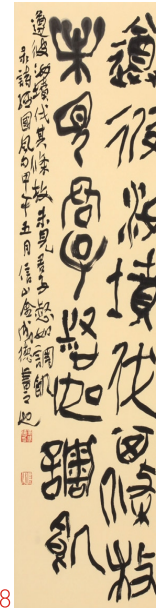 遵彼汝墳伐其條枚
未見君子惄如調飢
遵彼汝墳伐其條枚未見君子惄如調飢
录詩經國風句甲午五月信山金成德
8